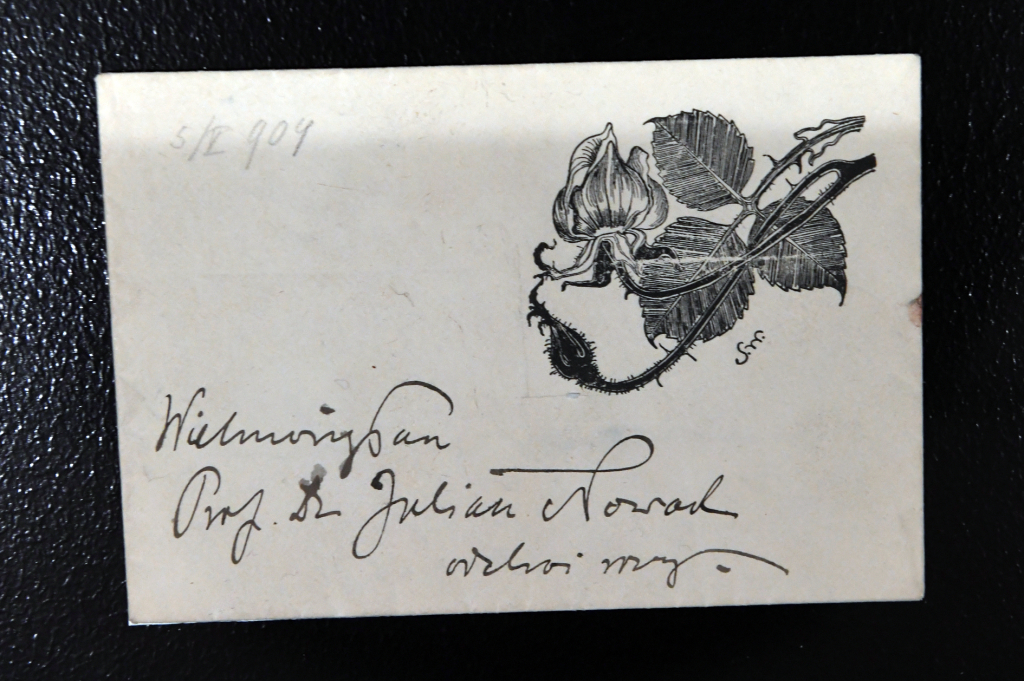 5/II 904
S.W.
Wielmożny Pan
Prof. Dr Julian Nowak